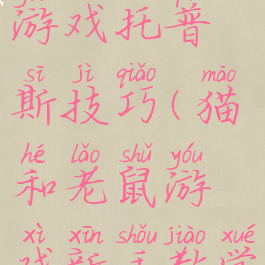 游戏托普
sī jì qiǎo māo
斯技巧(猫
hé lǎo shǔ yóu
和老鼠游
xì xīn shǒu jiào xué
戏新手教学